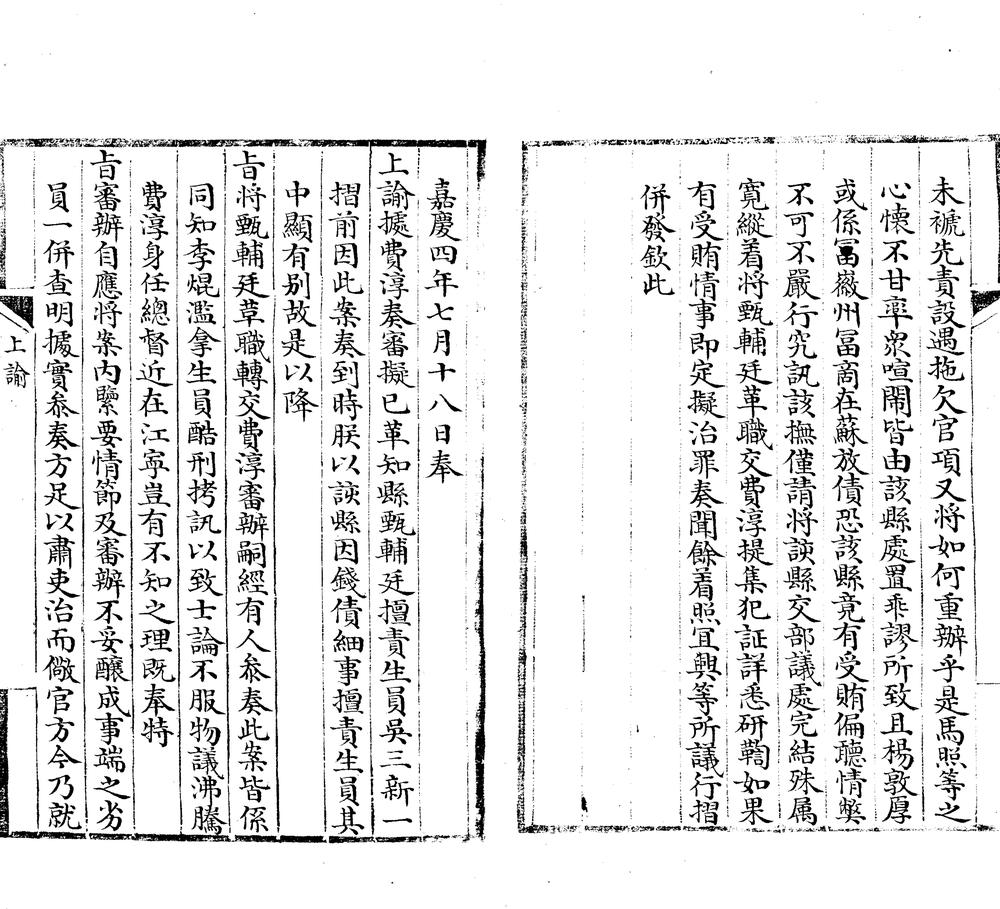 未褫先責設遇拖欠官項又將如何重辦乎是馬照等之
心懷不甘率衆喧鬧皆由該縣處置乖謬所致且楊敦厚
或係冨徽州冨商在蘇放債恐該縣竟有受賄偏聽情獘
不可不嚴行究訊該撫僅請將該縣交部議處完結殊属
寛縱着將甄輔廷革職交費淳提集犯証詳悉研鞫如果
有受賄情事即定擬治罪奏聞餘着照冝興等所議行摺
併發欽此
嘉慶四年七月十八日奉
上諭據費淳奏審擬已革知縣甄輔廷擅責生員吳三新一
摺前因此案奏到時朕以該縣因錢債細事擅責生員其
中顯有别故是以降
旨將甄輔廷革職轉交費淳審辦嗣經有人叅奏此案皆係
同知李焜濫拿生員酷刑拷訊以致士論不服物議沸騰
費淳身任總督近在江寧豈有不知之理既奉特
旨審辦自應將案內緊要情節及審辦不妥釀成事端之劣
員一併查明據實叅奏方足以肅吏治而儆官方今乃就
上諭